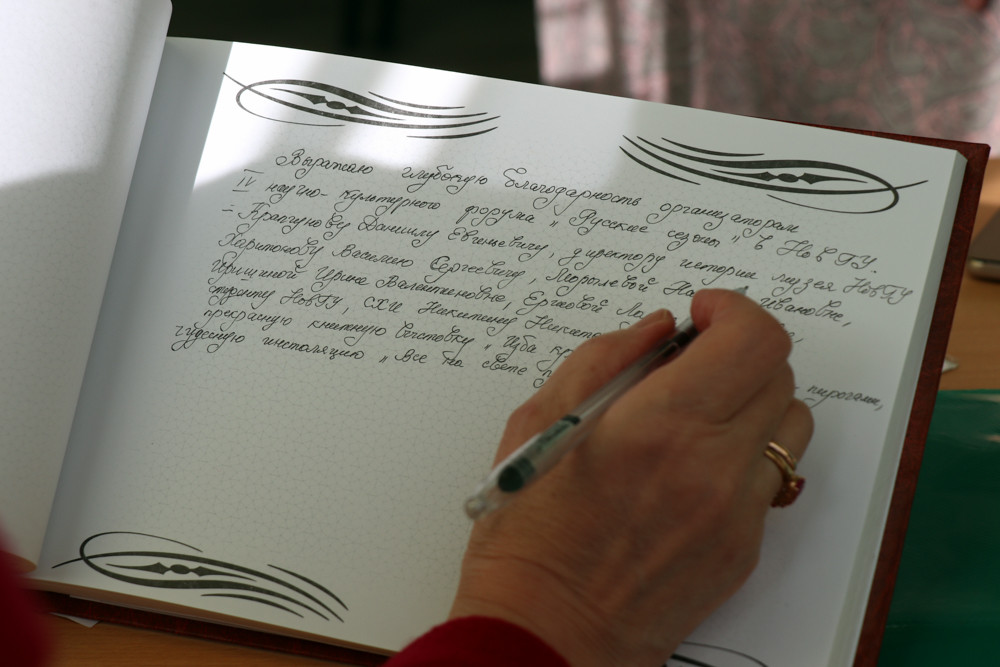 Выражаю глубокую благодарность организаторам
IV научно-культурного форума „Русские сезоны" в НовГУ.
Данилу Евгеньевичу, директору истории музея НовГУ
Харитонову Василию Сергеевичу, Ивановне,
Ирине Валентиновне,
студенту НовГУ, СХИ Никитину
прекрасную книжную выставку „Изба пирогами,
чудесную инсталяцию „Все на свете